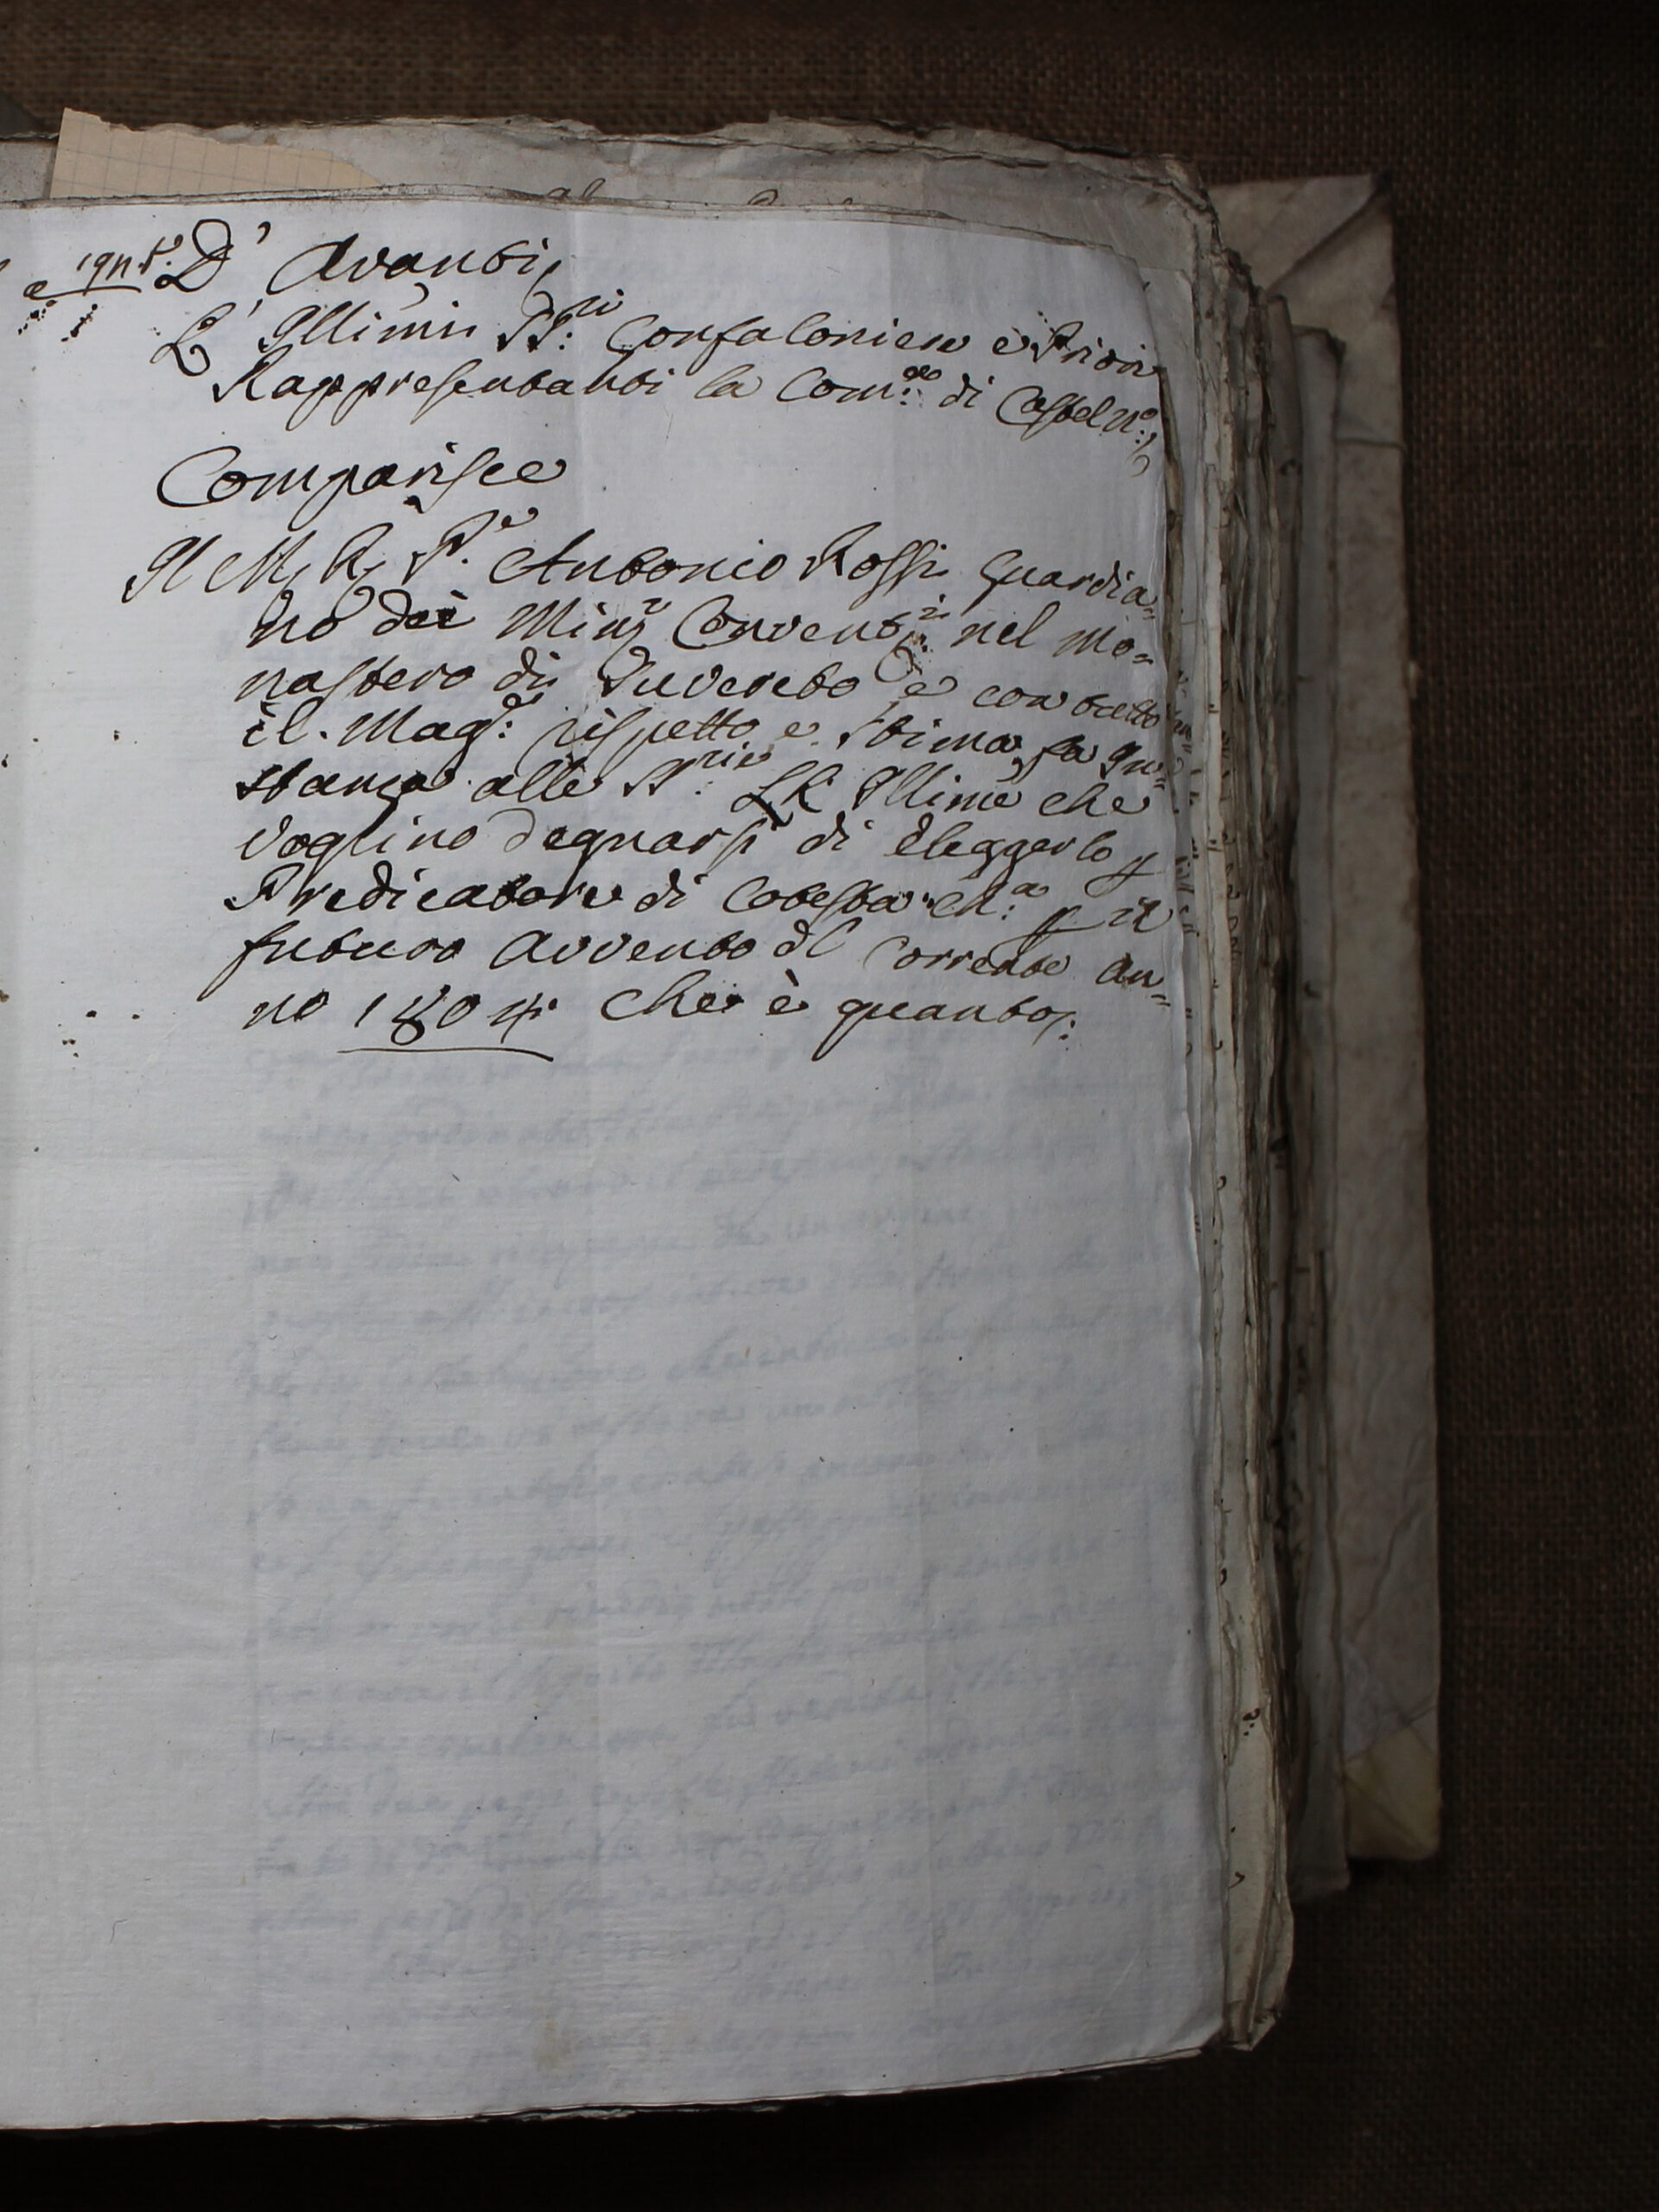 D' Avanti,
L' Illimi SS:ri Confaloniere e Priori
Rappresentanti la Com:tà di Castel n:o,
Comparisce
Il M. R. P.e Antonio Rossi Guardia=
no dei Min.ri Convent:li nel mo=
nastero di e con tutto
il Mag:e rispetto, e stima, fa In=
stanza alle SS:rie LL Illime che
voglino degnarsi di eleggerlo p
Predicatore di cotesta Ch:a p il
futuro Avvento dl corrente an=
no 1804: che è quanto: